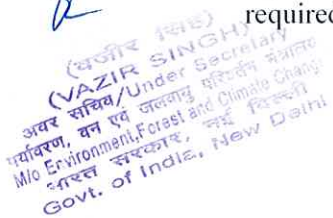 required
(वजीर सिंह)
(VAZIR SINGH)
अवर सचिव/Under Secretary
पर्यावरण, वन एवं जलवायु परिवर्तन मंत्रालय
M/o Environment,Forest and Climate Change
भारत सरकार, नई दिल्ली
Govt. of India, New Delhi